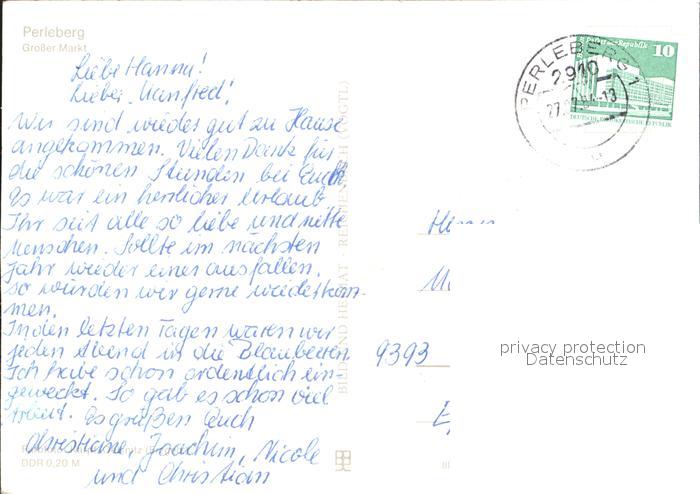 Perleberg
Großer Markt
Liebe Hanni!
Lieber Manfred!
Wir sind wieder gut zu Hause
angekommen. Vielen Dank für
die schönen Stunden bei Euch
Es war ein herrlicher Urlaub
Ihr seit alle so liebe und nette
Menschen. Sollte im nächsten
Jahr wieder einer ausfallen,
so würden wir gerne wiederkom-
men.
In den letzten Tagen waren wir
jeden Abend in die Blaubeeren
Ich habe schon ordentlich ein-
geweckt. So gab es schon viel
Arbeit. Es grüßen Euch
Christiane, Joachim, Nicole
und Christian
DDR 0,20 M
BILD UND HEIMAT · REICHENBACH (VOGTL)
PERLEBERG 1
2910
10
DEUTSCHE DEMOKRATISCHE REPUBLIK
9393
privacy protection
Datenschutz